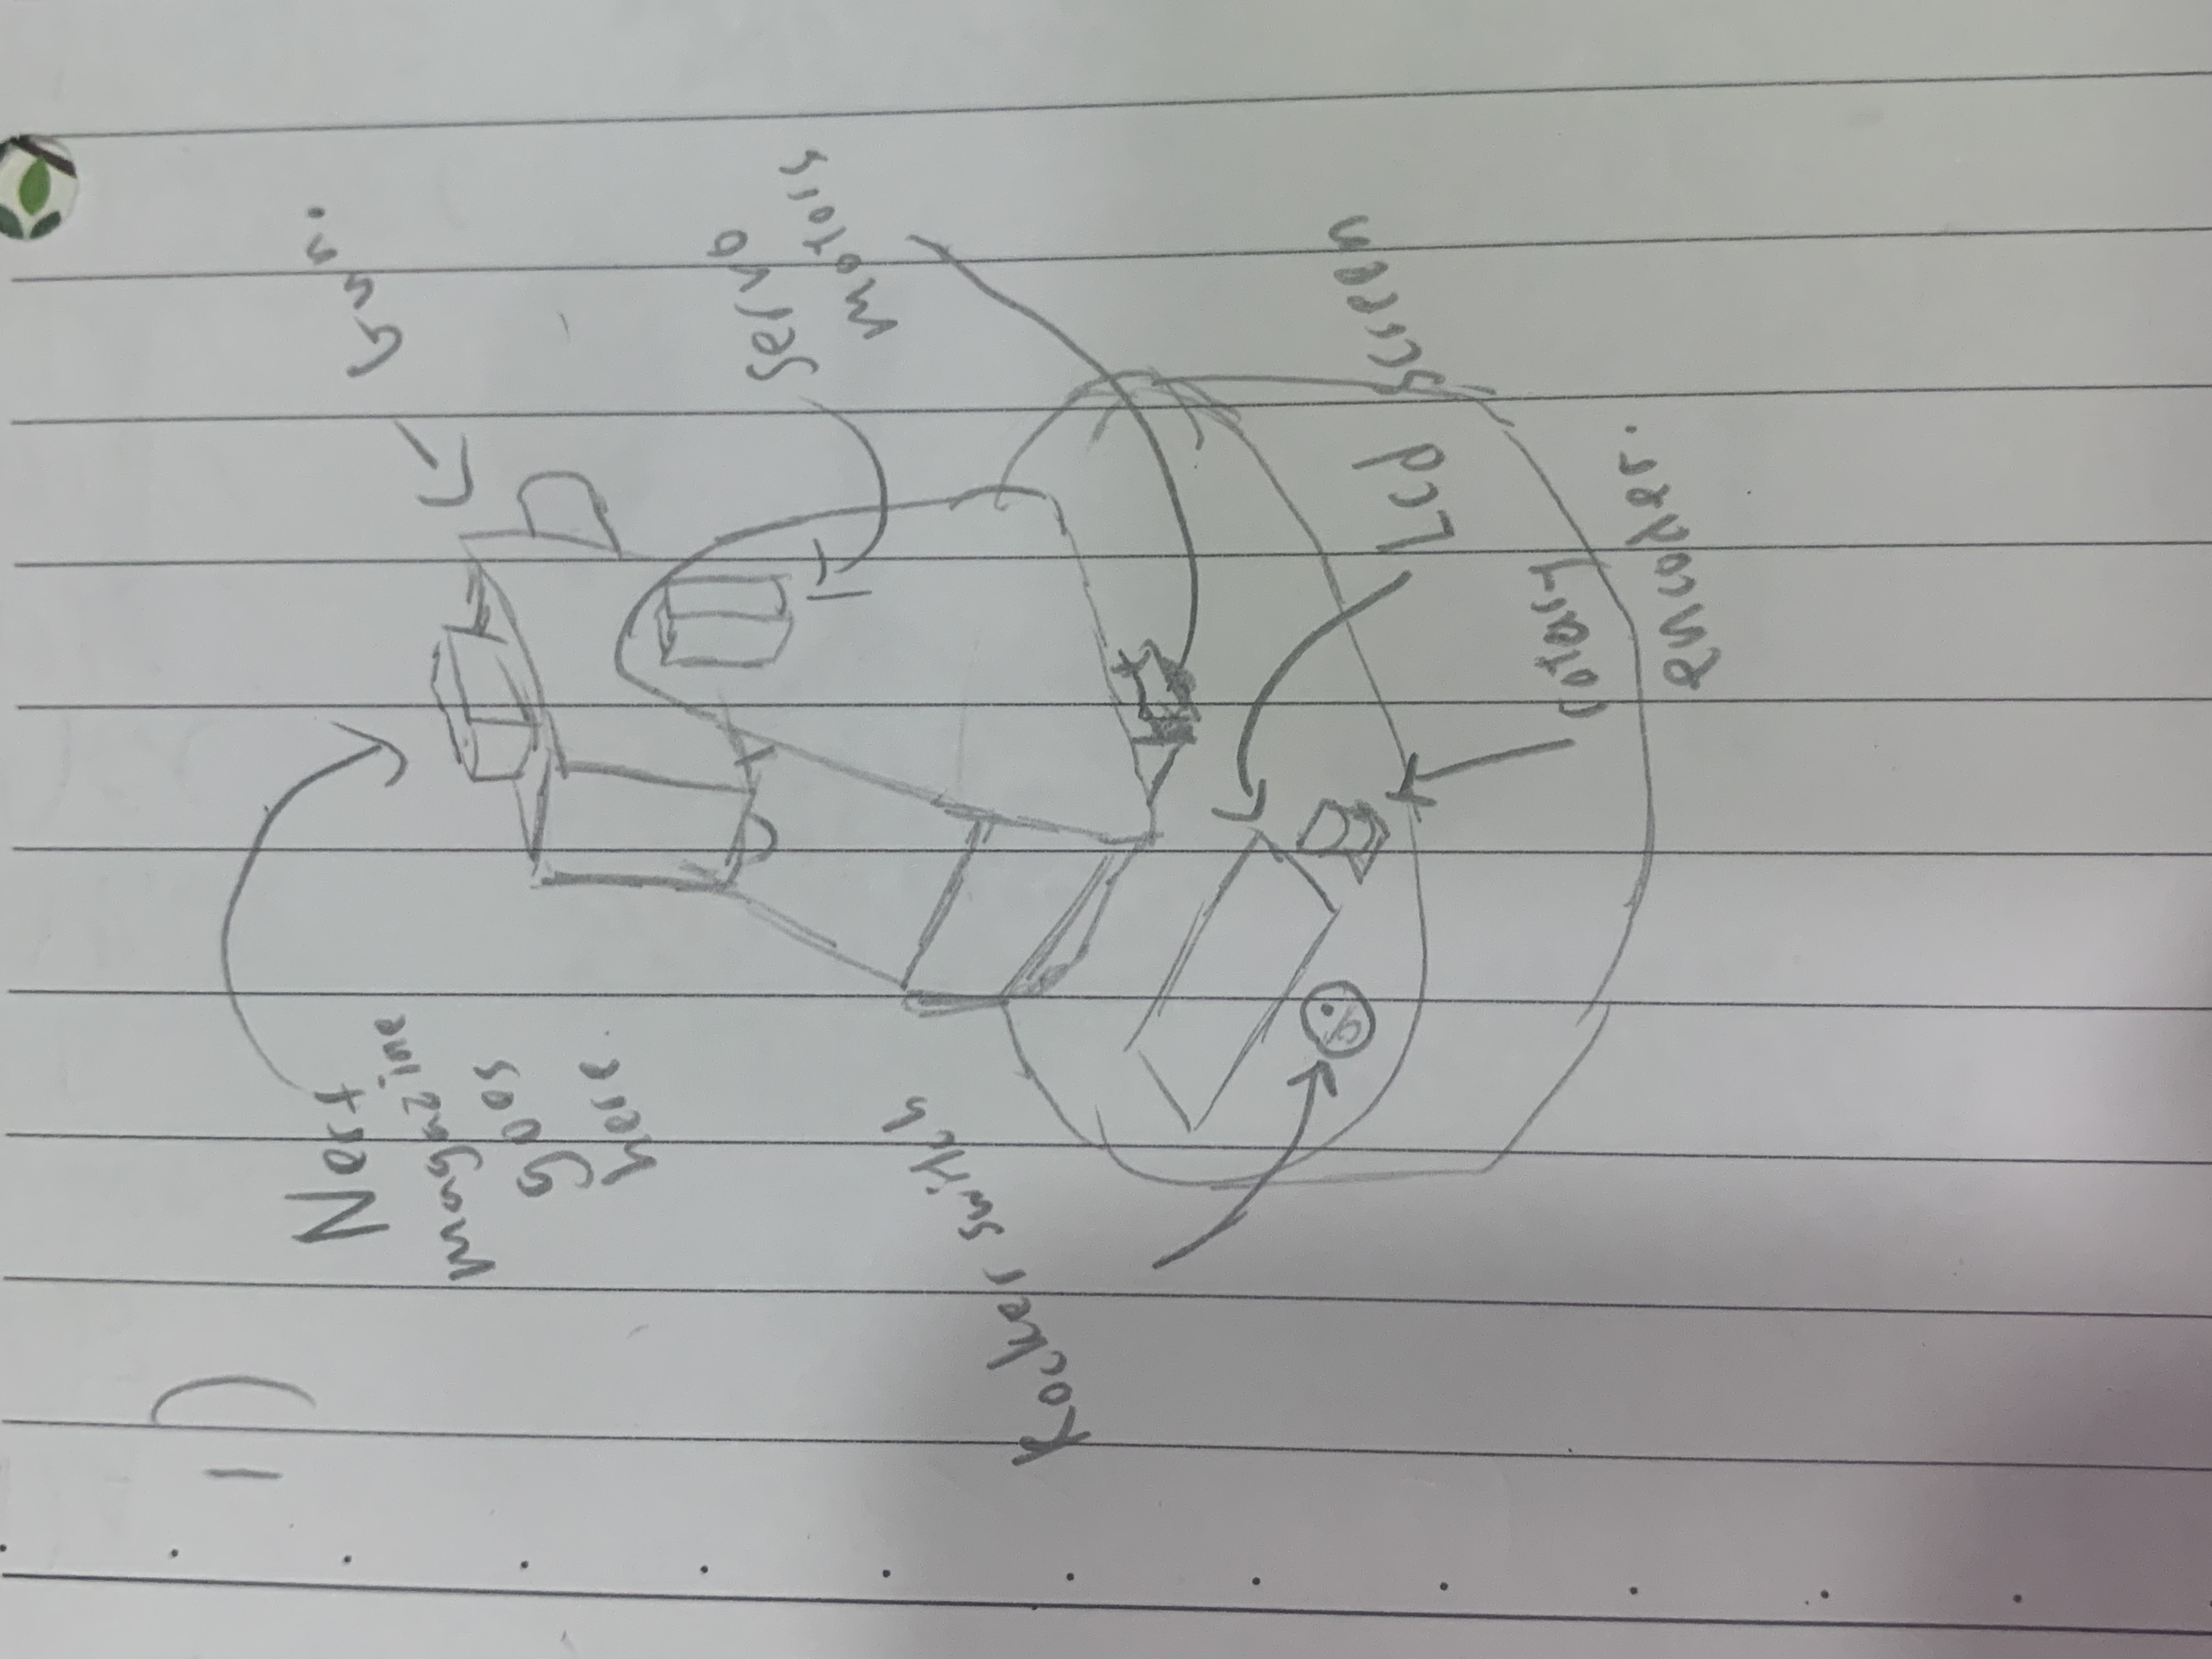 1)
Nerf
magazine
goes
here.
Gun.
Servo
motors
Rocker switch
Lcd screen
rotary
encoder.